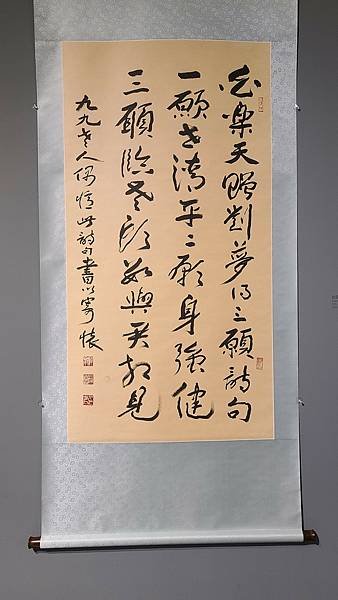 樂天贈劉夢得三願詩句
一願世清平二願身強健
三願臨老頭數與君相見
九九老人偶憶此詩句書以寄懷